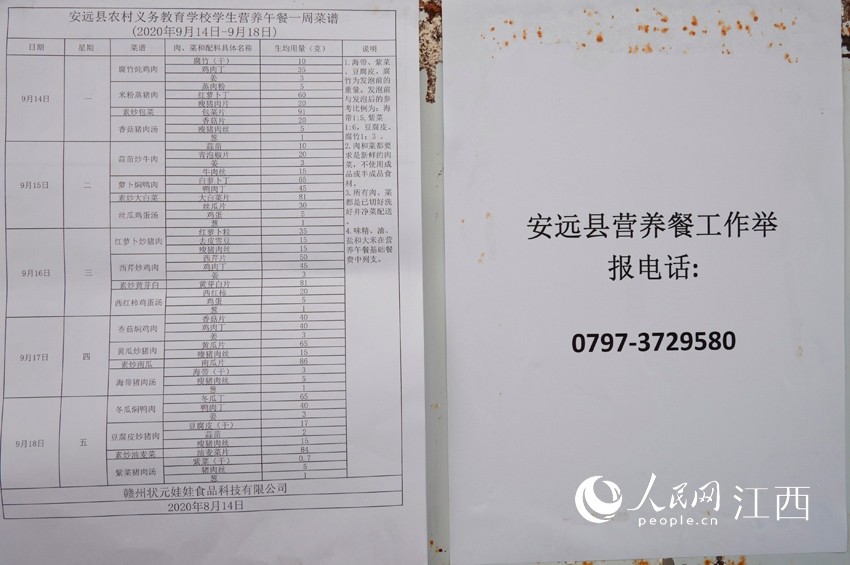 安远县农村义务教育学校学生营养午餐一周菜谱
(2020年9月14日-9月18日)
日期 星期 菜谱 肉、菜和配料具体名称 生均用量（克） 说明
9月14日 一
腐竹炖鸡肉 腐竹（干） 10
鸡肉丁 35
姜 3
米粉蒸猪肉 蒸肉粉 5
红萝卜丁 60
瘦猪肉片 20
素炒包菜 包菜片 91
香菇猪肉汤 香菇片 20
瘦猪肉丝 5
葱 1
9月15日 二
蒜苗炒牛肉 蒜苗 10
青泡椒片 20
姜 3
牛肉丝 15
萝卜焖鸭肉 白萝卜丁 65
鸭肉丁 45
素炒大白菜 大白菜片 81
丝瓜鸡蛋汤 丝瓜片 30
鸡蛋 5
葱 1
9月16日 三
红萝卜炒猪肉 红萝卜粒 35
去皮雪豆 15
瘦猪肉丝 15
西芹炒鸡肉 西芹片 50
鸡肉丁 45
姜 3
素炒黄芽白 黄芽白片 81
西红柿鸡蛋汤 西红柿 20
鸡蛋 5
葱 1
9月17日 四
香菇焖鸡肉 香菇片 40
鸡肉丁 40
姜 3
黄瓜炒猪肉 黄瓜片 65
瘦猪肉丝 15
素炒南瓜 南瓜片 86
海带猪肉汤 海带（干） 3
瘦猪肉丝 5
葱 1
9月18日 五
冬瓜焖鸭肉 冬瓜丁 65
鸭肉丁 40
姜 3
豆腐皮炒猪肉 豆腐皮（干） 17
蒜苗 2
瘦猪肉丝 15
素炒油麦菜 油麦菜片 84
紫菜猪肉汤 紫菜（干） 0.7
猪肉丝 5
葱 1
1.海带、紫菜
、豆腐皮、腐
竹为发泡前的
重量，发泡前
与发泡后的参
考比例为：海
带1:5,紫菜
1:6，豆腐皮、
腐竹1：3 。
2.肉和菜都要
求是新鲜的肉
菜，不使用成
品或半成品食
材。
3.所有肉、菜
都是已切好洗
好并净菜配送
。
4.味精、油、
盐和大米在营
养午餐基础餐
费中列支。
赣州状元娃娃食品科技有限公司
2020年8月14日
安远县营养餐工作举
报电话:
0797-3729580
人民网 江西
people.cn